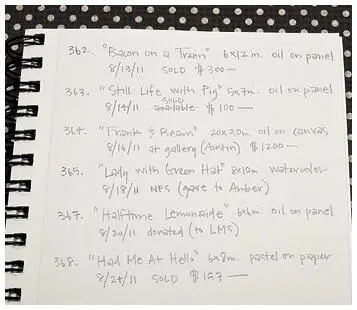 362. "Bacon on a Train" 6x12in. oil on panel
8/13/11 SOLD $300—
363. "Still Life with Pig" 5x7in. oil on panel
SOLD
8/14/11 available $100—
364. "Frank & Beans" 20x20in. oil on canvas
8/16/11 at gallery (Austin) $1200—
365. "Lady with Green Hat" 8x10in. watercolor
8/18/11 NFS (gave to Amber)
367. "Halftime Lemonade" 6x6in. oil on panel
8/20/11 donated (to LMS)
368. "Had Me At Hello" 6x8in. pastel on paper
8/24/11 SOLD $157—